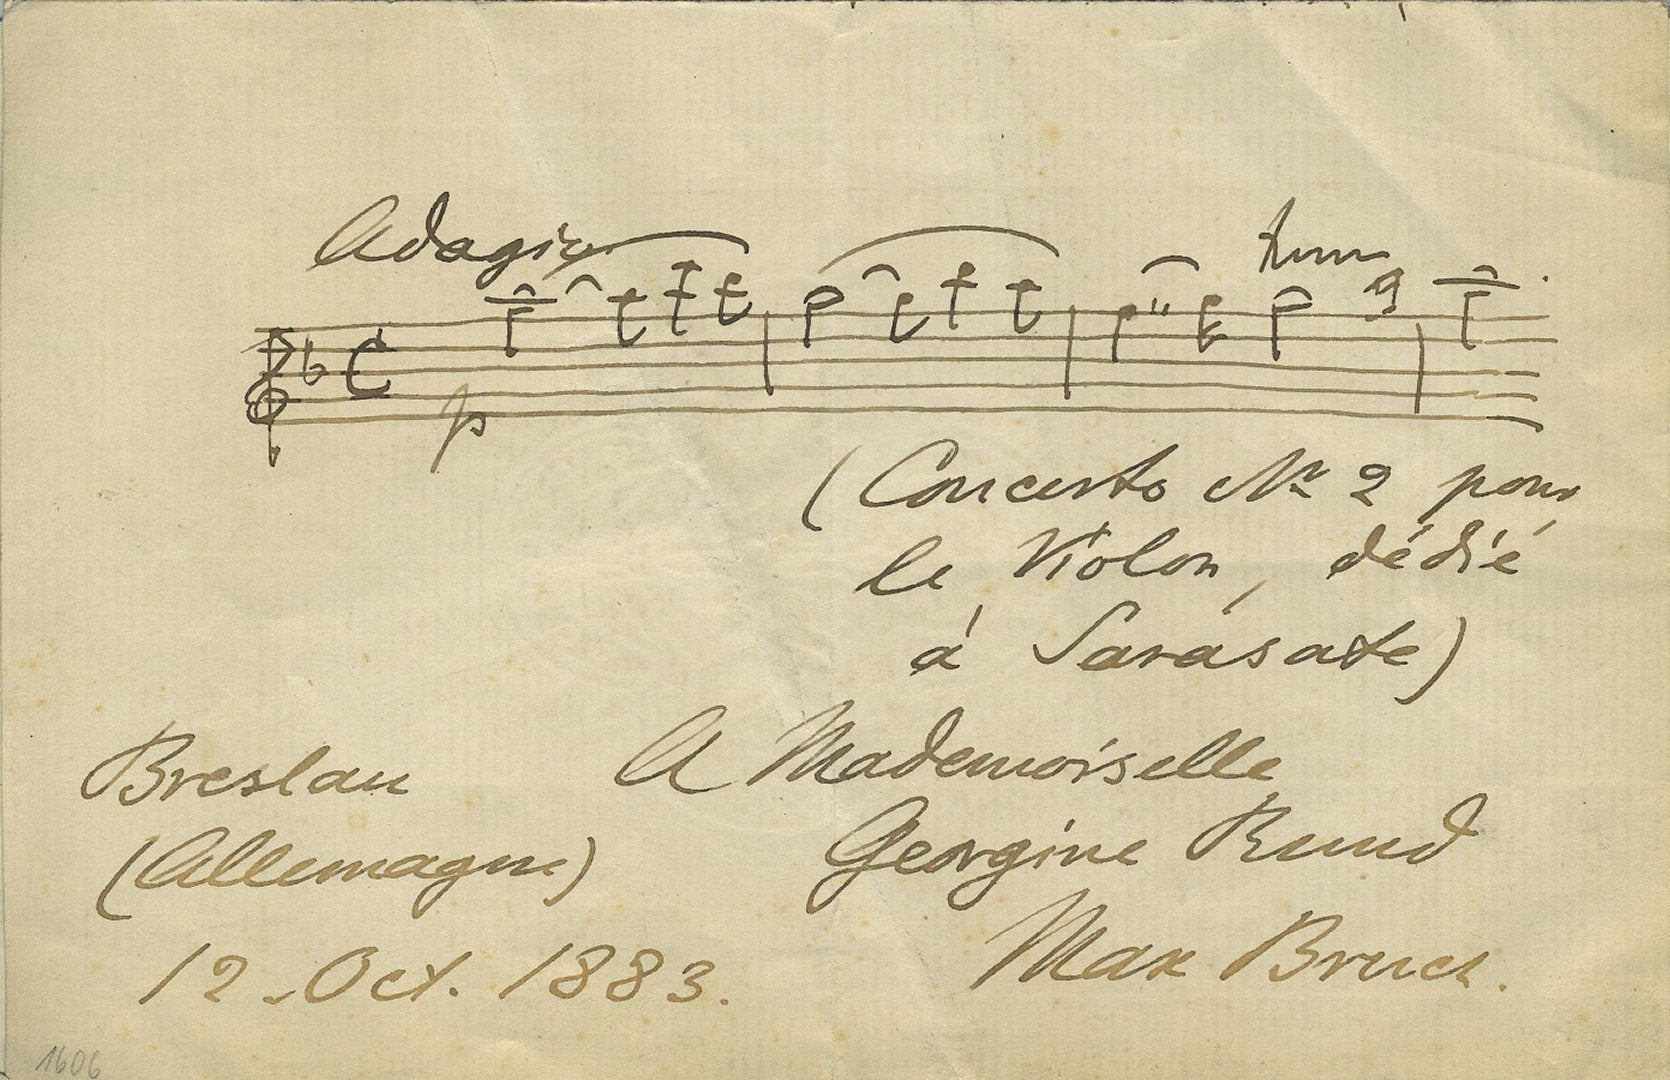 Adagio
tr
p
(Concerto No 2 pour
le Violon, dédié
à Sarasate)
Breslau
(Allemagne)
12. Oct. 1883.
A Mademoiselle
Georgine
Max Bruch.
1606